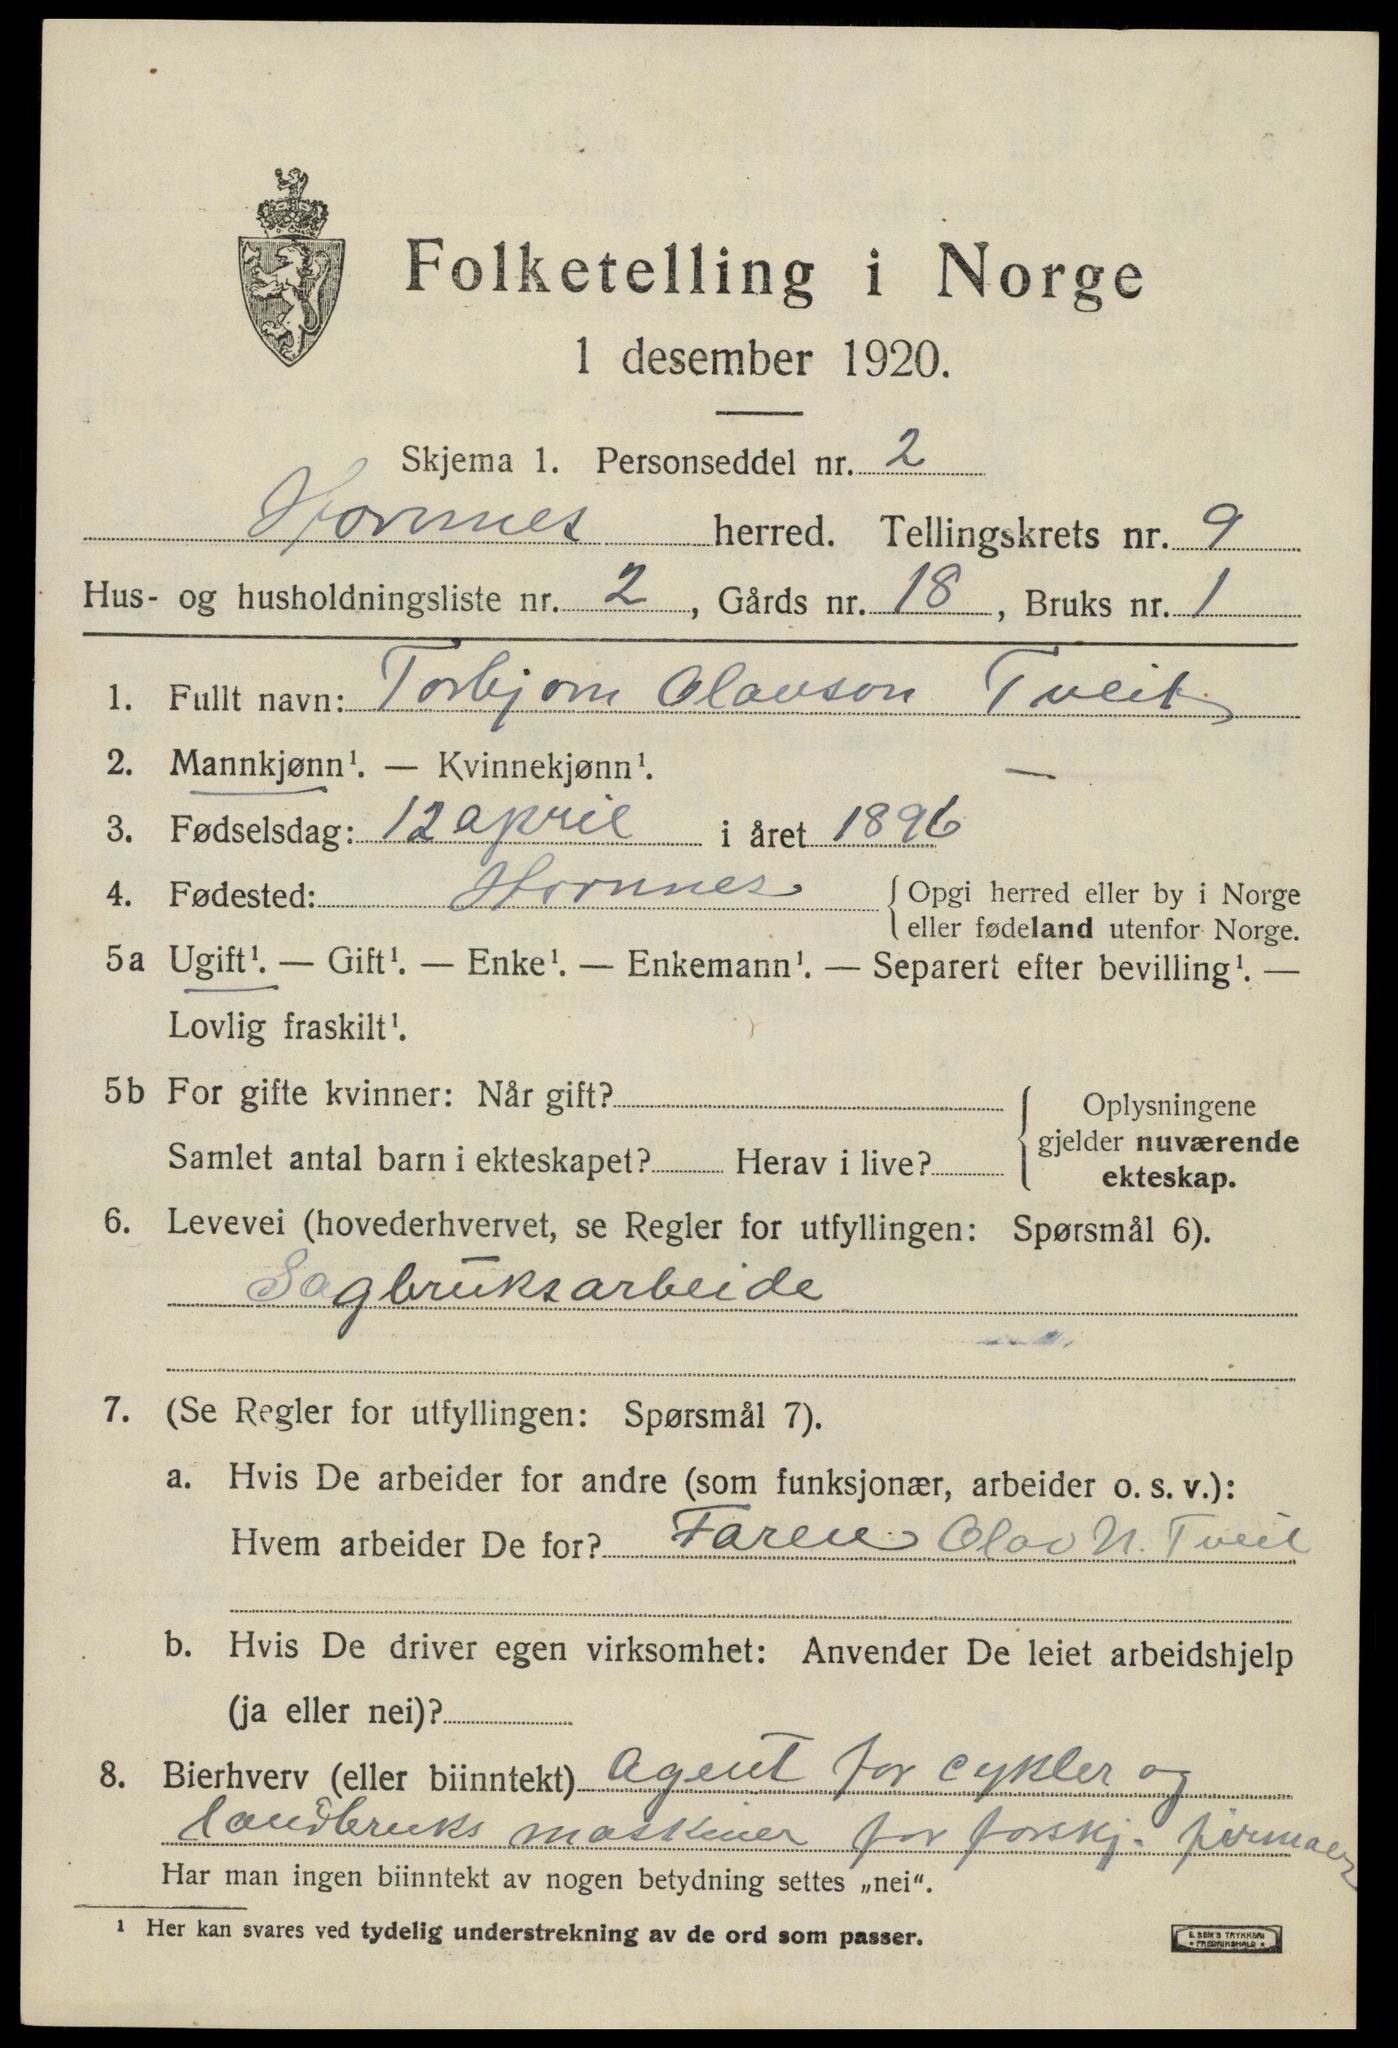 Folketelling i Norge
1 desember 1920.
Skjema 1. Personseddel nr. 2
Hornnes herred. Tellingskrets nr. 9
Hus- og husholdningsliste nr. 2, Gårds nr. 18, Bruks nr. 1
1. Fullt navn: Torbjørn Olavson Tveit
2. Mannkjønn¹. — Kvinnekjønn¹. —
3. Fødselsdag: 12 april i året 1896
4. Fødested: Hornnes { Opgi herred eller by i Norge
eller fødeland utenfor Norge.
5a Ugift¹. — Gift¹. — Enke¹. — Enkemann¹. — Separert efter bevilling¹. —
Lovlig fraskilt¹.
5b For gifte kvinner: Når gift? { Oplysningene
gjelder nuværende
Samlet antal barn i ekteskapet? Herav i live?
ekteskap.
6. Levevei (hovederhvervet, se Regler for utfyllingen: Spørsmål 6).
Sagbruksarbeide
7. (Se Regler for utfyllingen: Spørsmål 7).
a. Hvis De arbeider for andre (som funksjonær, arbeider o. s. v.):
Hvem arbeider De for? Faren Olav N. Tveit
b. Hvis De driver egen virksomhet: Anvender De leiet arbeidshjelp
(ja eller nei)?
8. Bierhverv (eller biinntekt) Agent for cykler og
landbruks maskiner for forskj. firmaer
Har man ingen biinntekt av nogen betydning settes „nei“.
¹ Her kan svares ved tydelig understrekning av de ord som passer.
E. SEM'S TRYKKERI
• FREDRIKSHALD •